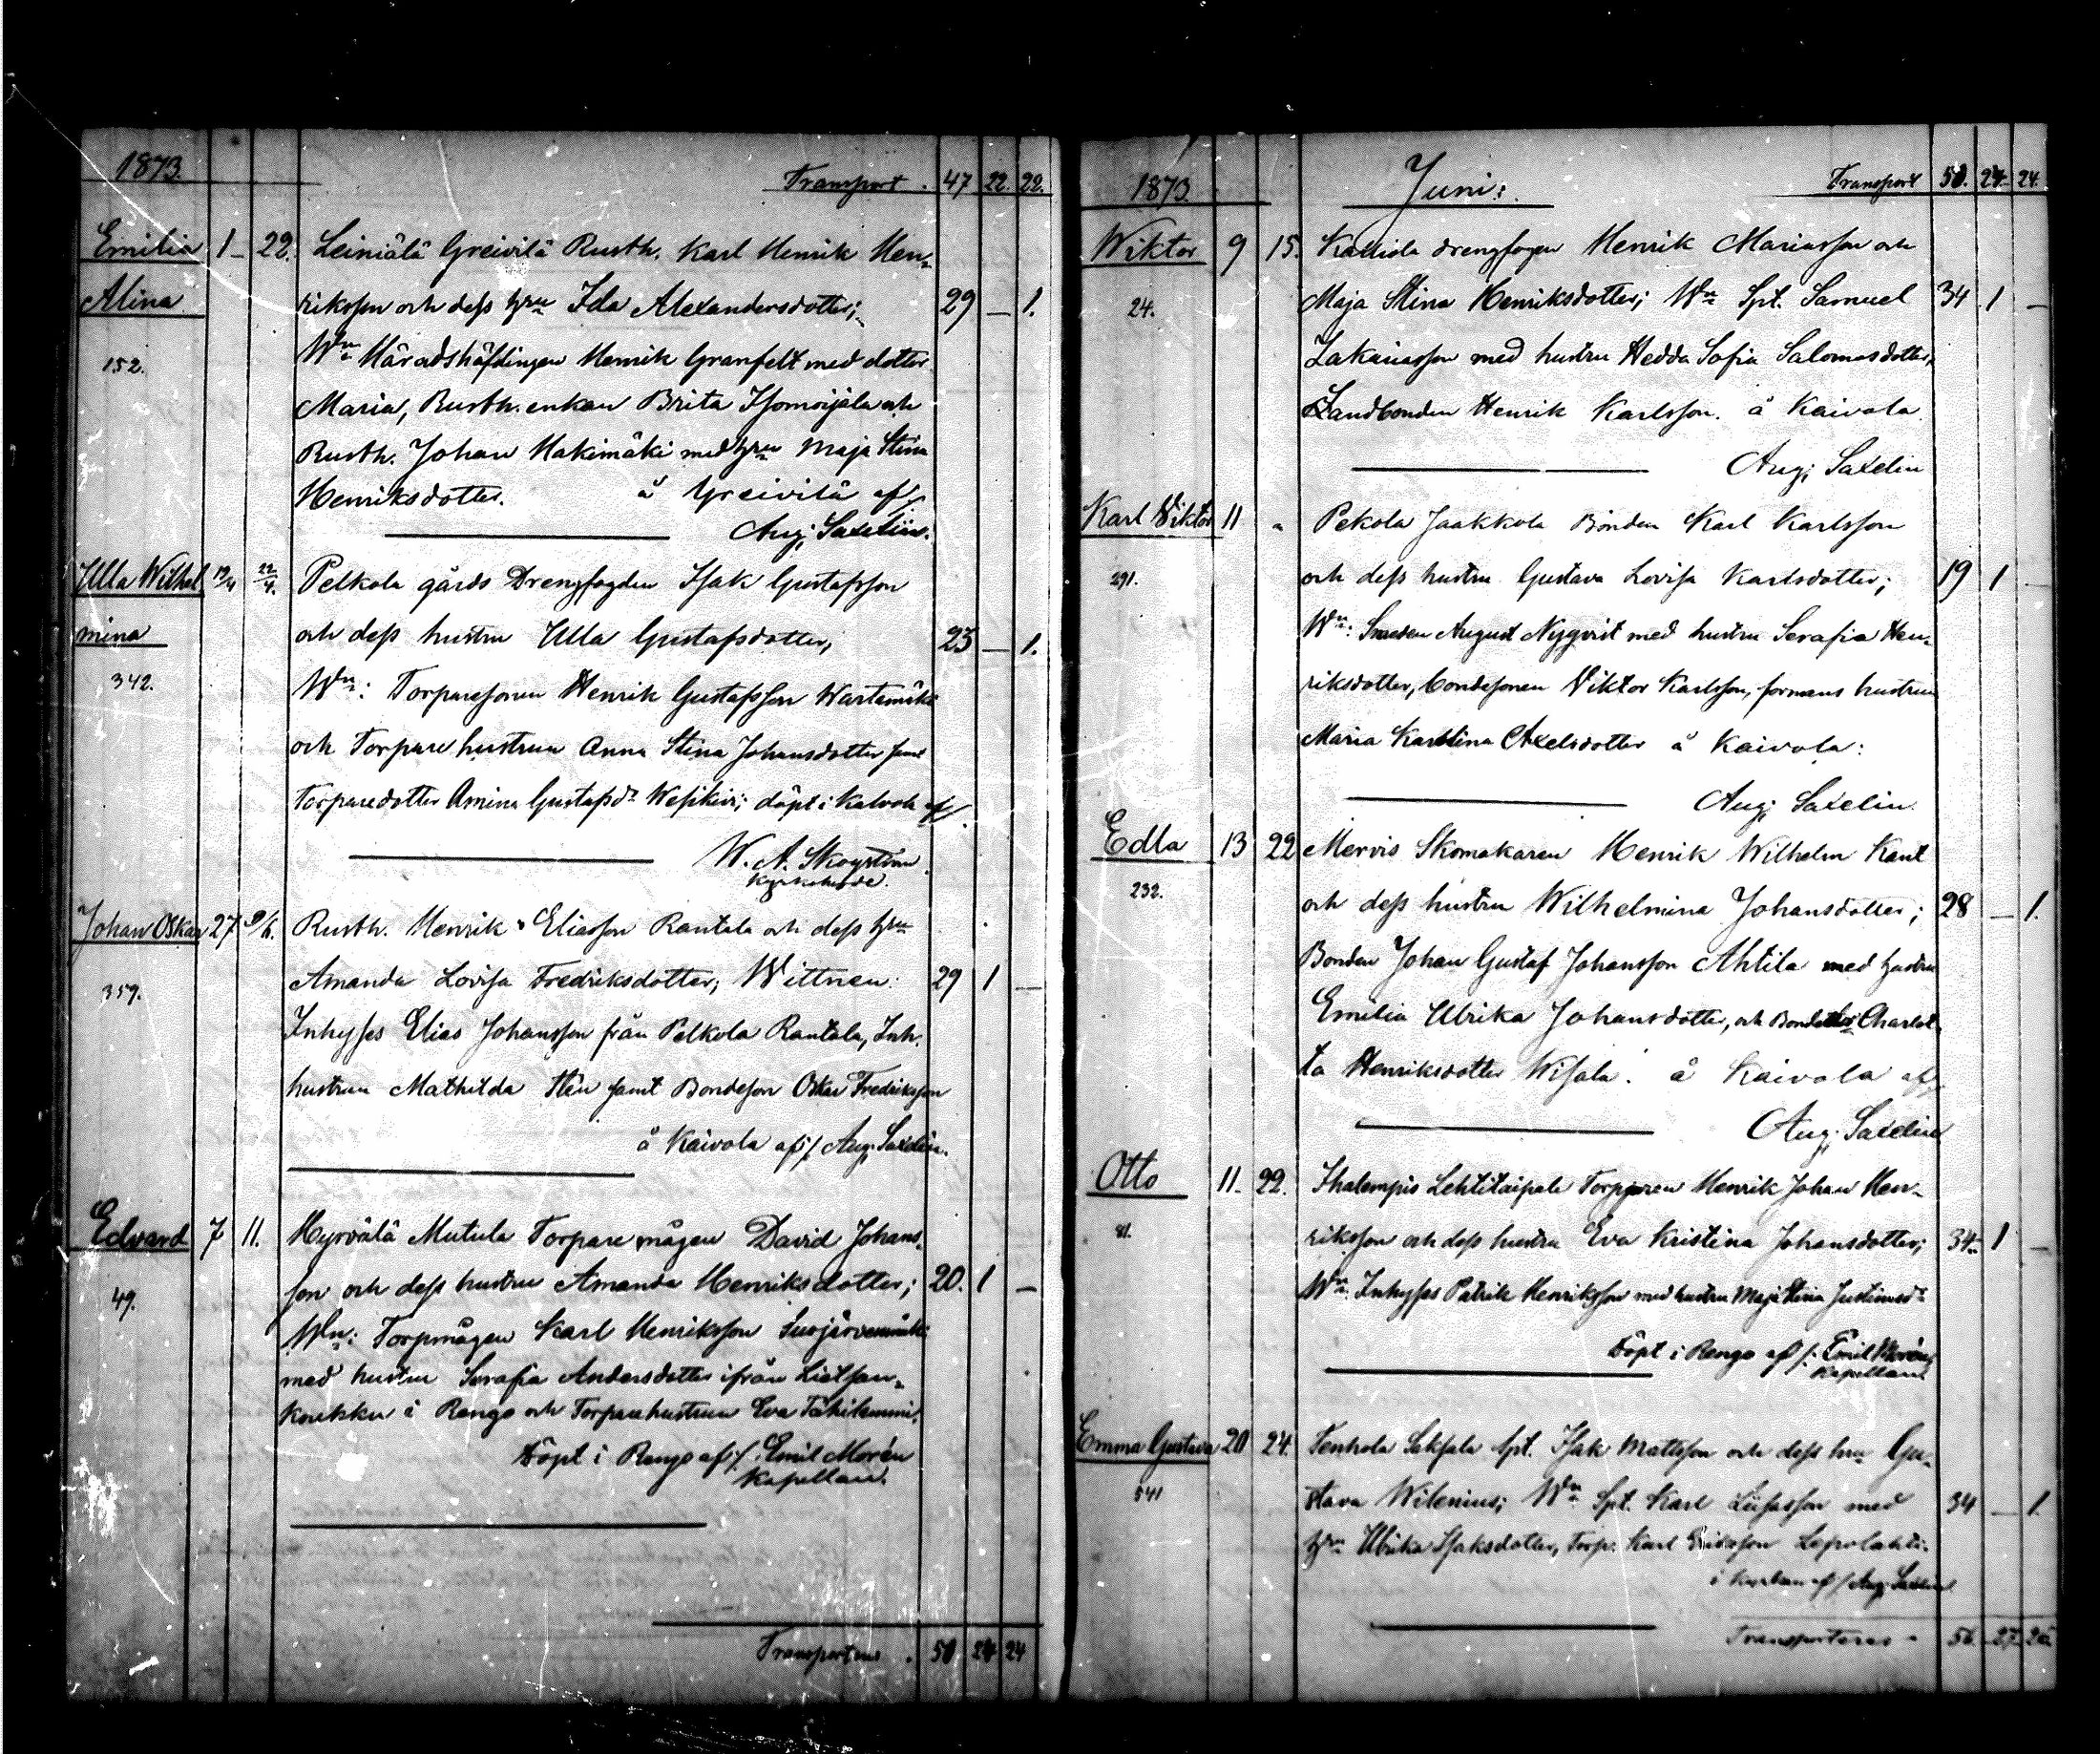 1873. Transport . 47 22. 22.
Emilia 1 22. Leiniälä Greivilä Rusth. Karl Henrik Hen-
Alina riksson och dess hru Ida Alexandersdotter; 29 — 1.
Wn Häradshöfdingen Henrik Granfelt med dotter
152.
Maria, Rusth. enkan Brita Isomoijala och
Rusth. Johan Hakimäki med hru Maja Stina
Henriksdotter. å Greivilä af
Aug. Saxelin.
Ulla Wilhel 19/4 22/4. Pelkola gårds Drengfogden Isak Gustafsson
mina och dess hustru Ulla Gustafsdotter, 23 — 1.
342. Wn: Torparesonen Henrik Gustafsson
och Torpare hustrun Anna Stina Johansdotter samt
Torparedotter Amina Gustafsdr döpt i Kalvola af
W. A. Skogström
Kyrkoherde.
Johan Oskar 27 Rusth. Henrik Eliasson Rantala och dess hru
Amanda Lovisa Fredriksdotter; Wittnen: 29 1 —
359.
Inhyses Elias Johansson från Pelkola Rantala, Inh.
hustrun Mathilda Sten samt Bondeson Oskar Fredriksson
å Kaivola af /. Aug. Saxelin.
Edvard 7 11. Hyrvälä Mutula Torpare mågen David Johans-
son och dess hustru Amanda Henriksdotter; 20. 1 —
49.
Wn: Torpmågen Karl Henriksson
med hustru Serafia Andersdotter ifrån
i Rengo och Torparehustrun Eva
Döpt i Rengo af /. Emil Morén
Kapellan.
Transporteras . 50 24 24
1873. Juni: Transport 50. 24 24.
Wiktor 9 15. drengfogen Henrik Mariasson och
24. Maja Stina Henriksdotter; Wn Spt. Samuel 34 1 —
Zakariasson med hustru Hedda Sofia Salomosdotter,
Landbonden Henrik Karlsson. å Kaivola
Aug. Saxelin
Karl Viktor 11 " Pekola Jaakkola Bonden Karl Karlsson
291. och dess hustru Gustava Lovisa Karlsdotter; 19 1 —
Wn: Smeden August Nygvist med hustru Serafia Hen-
riksdotter, bondesonen Viktor Karlsson, formans hustrun
Maria Karolina Axelsdotter å Kaivola:
Aug. Saxelin.
Edla 13 22 Mervis Skomakaren Henrik Wilhelm Kant
232. och dess hustru Wilhelmina Johansdotter; 28 — 1.
Bonden Johan Gustaf Johansson Ahtila med hustru
Emilia Ulrika Johansdotter, och Bondedotter Charlot-
ta Henriksdotter Wisala. å Kaivola af
Aug. Saxelin
Otto 11. 22. Ihalempis Lehtitaipale Torparen Henrik Johan Hen-
81. riksson och dess hustru Eva Kristina Johansdotter; 34 1 —
Wn. Inhyses Patrik Henriksson med hustru Maja Stina
Döpt i Rengo af /. Emil Morén
Kapellan
Emma Gustava 20 24. Tenhola Saksala Spt. Isak Mattsson och dess hru Gu-
541 stava Wilenius; Wn Spt. Karl med 34 — 1.
hru Ulrika Isaksdotter, Torp. Karl Eriksson
i af / Aug. Saxelin
Transporteras